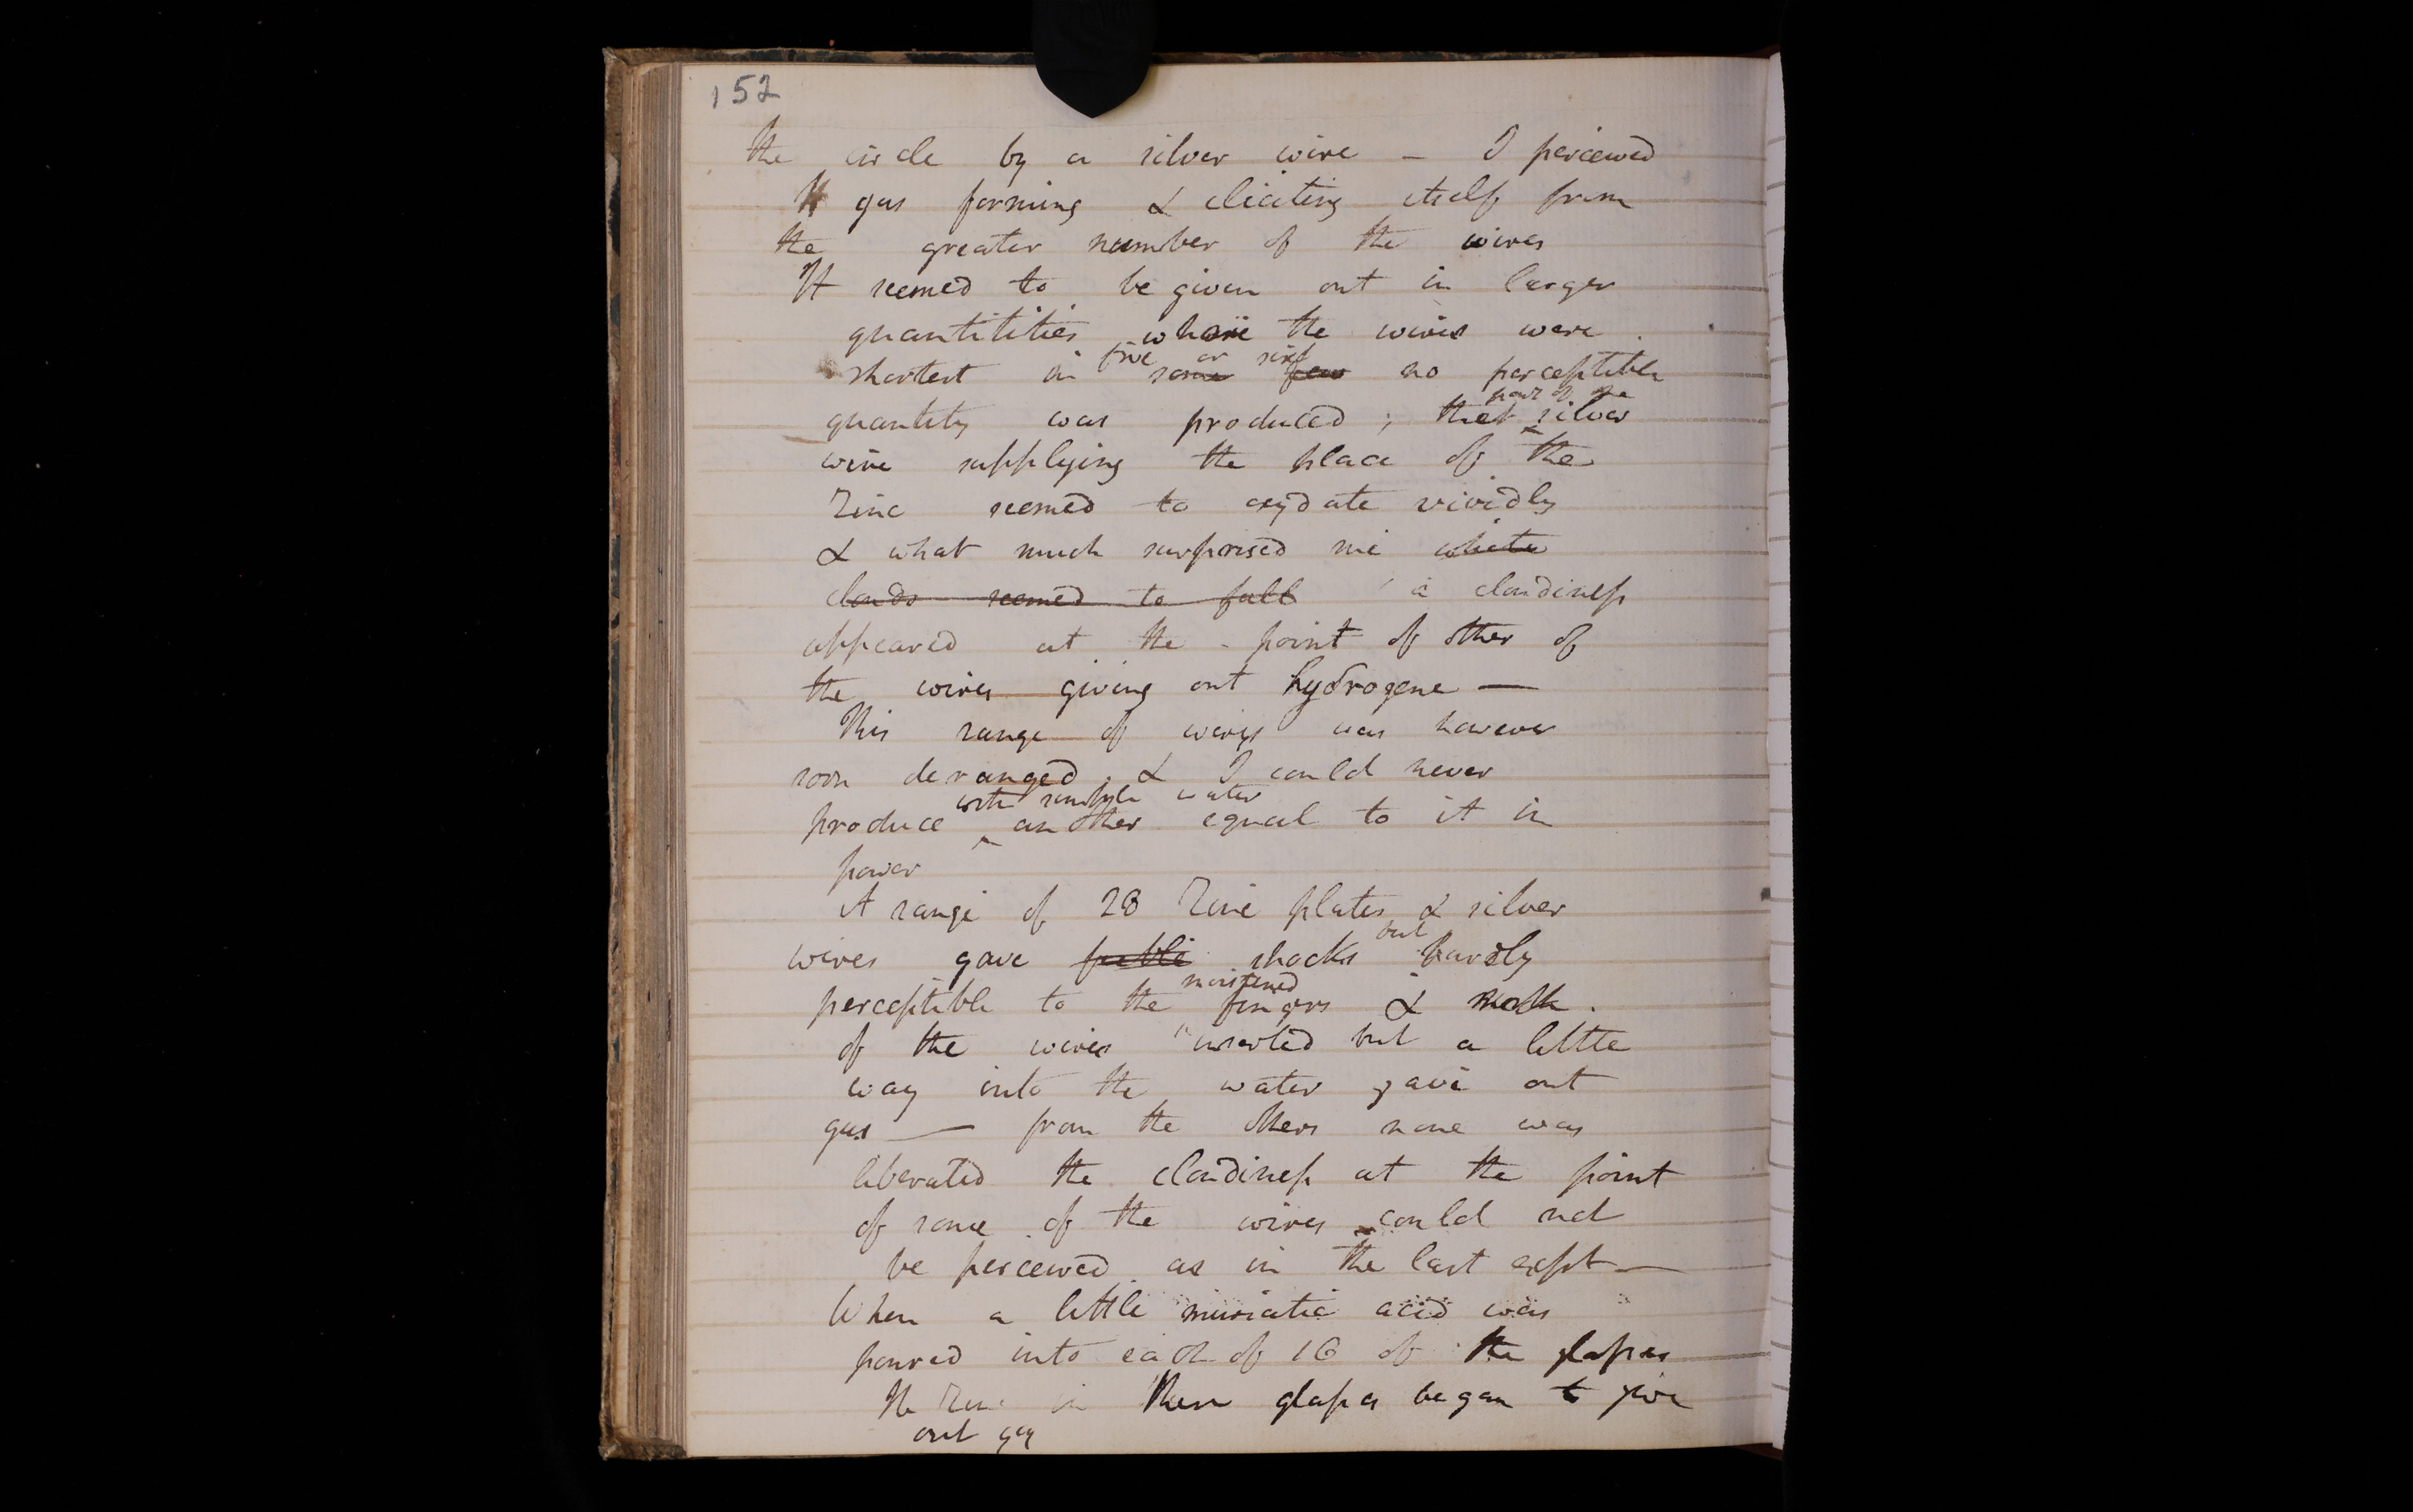 152
the circle by a silver wire – I perceived
gas forming & eliciting itself from
the greater number of the wires
It seemed to be given out in larger
quantitities where the wires were
five or six
shortest in some few no perceptible
part of the
quantity was produced; that silver
wire supplying the place of the
Zinc seemed to oxydate vividly
& what much surprised me white
clouds seemed to fall a cloudiness
appeared at the point of other of
the wires giving out hydrogene —
This range of wires was however
soon deranged, & I could never
with simple water
produce another equal to it in
power
A range of 28 Zinc plates & silver
but
wires gave feeble shocks hardly
moistened
perceptible to the fingers &
of the wires inserted but a little
way into the water gave out
gas — from the others none was
liberated the cloudiness at the point
of some of the wires could not
be perceived as in the last expt —
When a little muriatic acid was
poured into each of 16 of the glasses
the Zinc in these glasses began to give
out gas